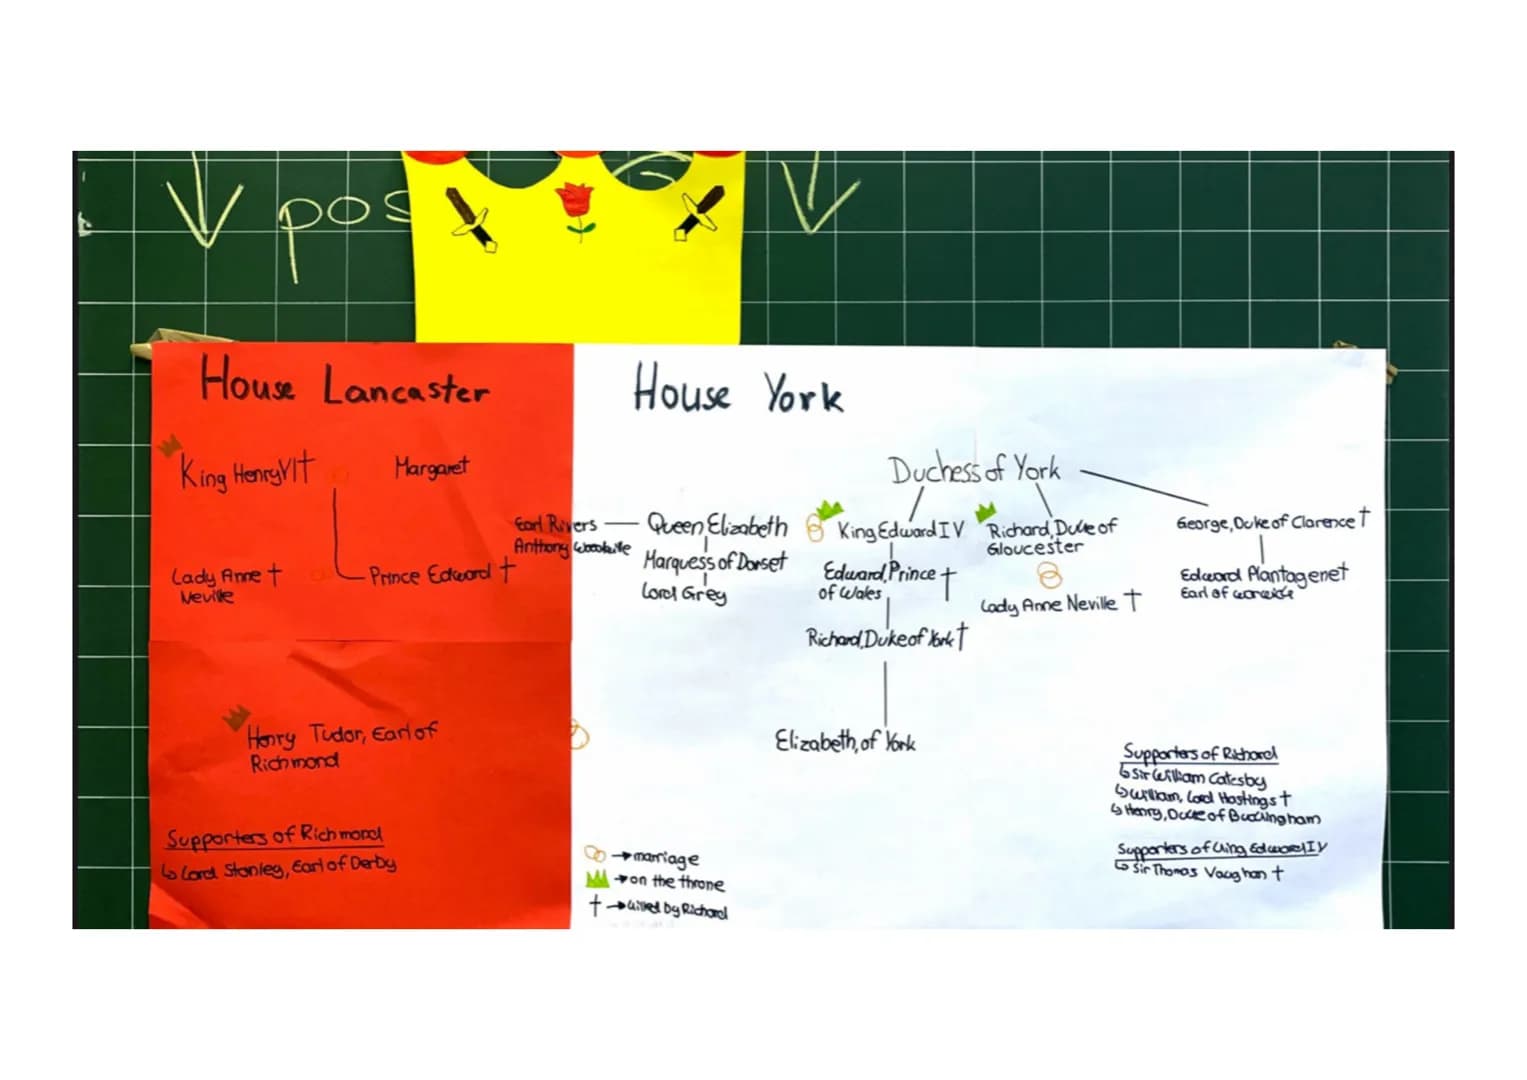 pos
House Lancaster
King Henry VI †
Margaret
Lady Anne †
Neville
Prince Edward †
Henry Tudor, Earl of
Richmond
Supporters of Richmond
↳ Lord Stanley, Earl of Derby
House York
Duchess of York
Earl Rivers
Anthony Woodville
Queen Elizabeth
Marquess of Dorset
Lord Grey
King Edward IV
Edward, Prince †
of Wales
Richard, Duke of York †
Elizabeth, of York
Richard, Duke of
Gloucester
Lady Anne Neville †
George, Duke of Clarence †
Edward Plantagenet
Earl of
Supporters of Richard
↳ Sir William Catesby
↳ William, Lord Hastings †
↳ Henry, Duke of Buckingham
Supporters of King Edward IV
↳ Sir Thomas Vaughan †
→ marriage
→ on the throne
† → killed by Richard